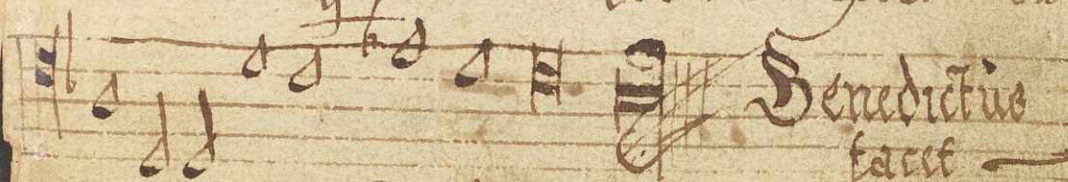 Benedictus
tacet